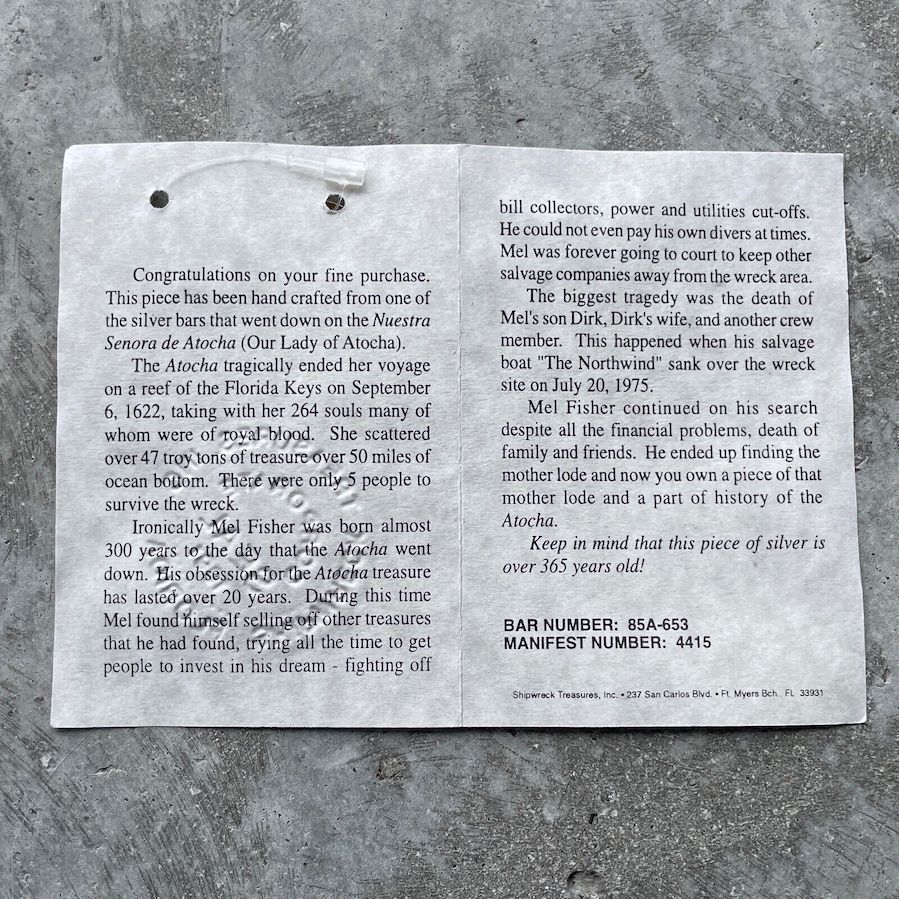 Congratulations on your fine purchase.
This piece has been hand crafted from one of
the silver bars that went down on the Nuestra
Senora de Atocha (Our Lady of Atocha).
The Atocha tragically ended her voyage
on a reef of the Florida Keys on September
6, 1622, taking with her 264 souls many of
whom were of royal blood. She scattered
over 47 troy tons of treasure over 50 miles of
ocean bottom. There were only 5 people to
survive the wreck.
Ironically Mel Fisher was born almost
300 years to the day that the Atocha went
down. His obsession for the Atocha treasure
has lasted over 20 years. During this time
Mel found himself selling off other treasures
that he had found, trying all the time to get
people to invest in his dream - fighting off
bill collectors, power and utilities cut-offs.
He could not even pay his own divers at times.
Mel was forever going to court to keep other
salvage companies away from the wreck area.
The biggest tragedy was the death of
Mel's son Dirk, Dirk's wife, and another crew
member. This happened when his salvage
boat "The Northwind" sank over the wreck
site on July 20, 1975.
Mel Fisher continued on his search
despite all the financial problems, death of
family and friends. He ended up finding the
mother lode and now you own a piece of that
mother lode and a part of history of the
Atocha.
Keep in mind that this piece of silver is
over 365 years old!
BAR NUMBER: 85A-653
MANIFEST NUMBER: 4415
Shipwreck Treasures, Inc. • 237 San Carlos Blvd. • Ft. Myers Bch., FL 33931